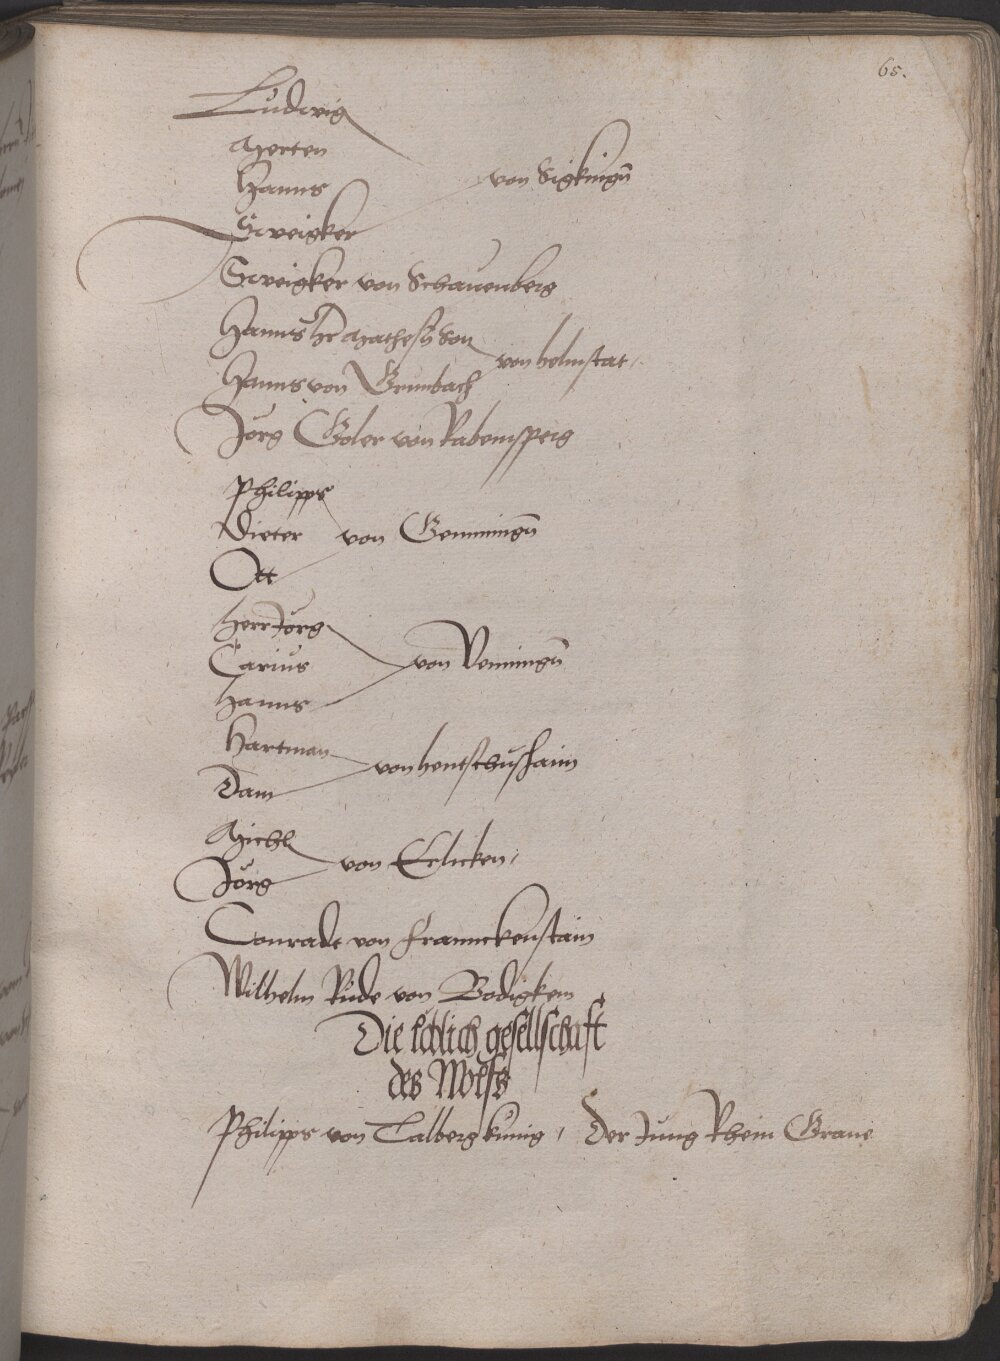 65.
Ludwig
Merten
Hanns
Sweigker
von Sigkingn̄
Sweigker von Schauenberg
Hanns hr̄ Mathesz Son
Hanns von Grumbach
von helmstat
Jörg Göler von Rabensperg
Philipps
Dieter
Ott
von Gemmingn̄
Herr Jörg
Carius
Hanns
von Venningn̄
Hartman
Dam
von hentschushaim
Michl
Jörg
von
Conradt von Frannckenstain
Wilhelm Rüde von Bodigkem
Die löblich gesellschaft
des Wolfs
Philipps von Talberg künig, Der Jung Rhein Graue